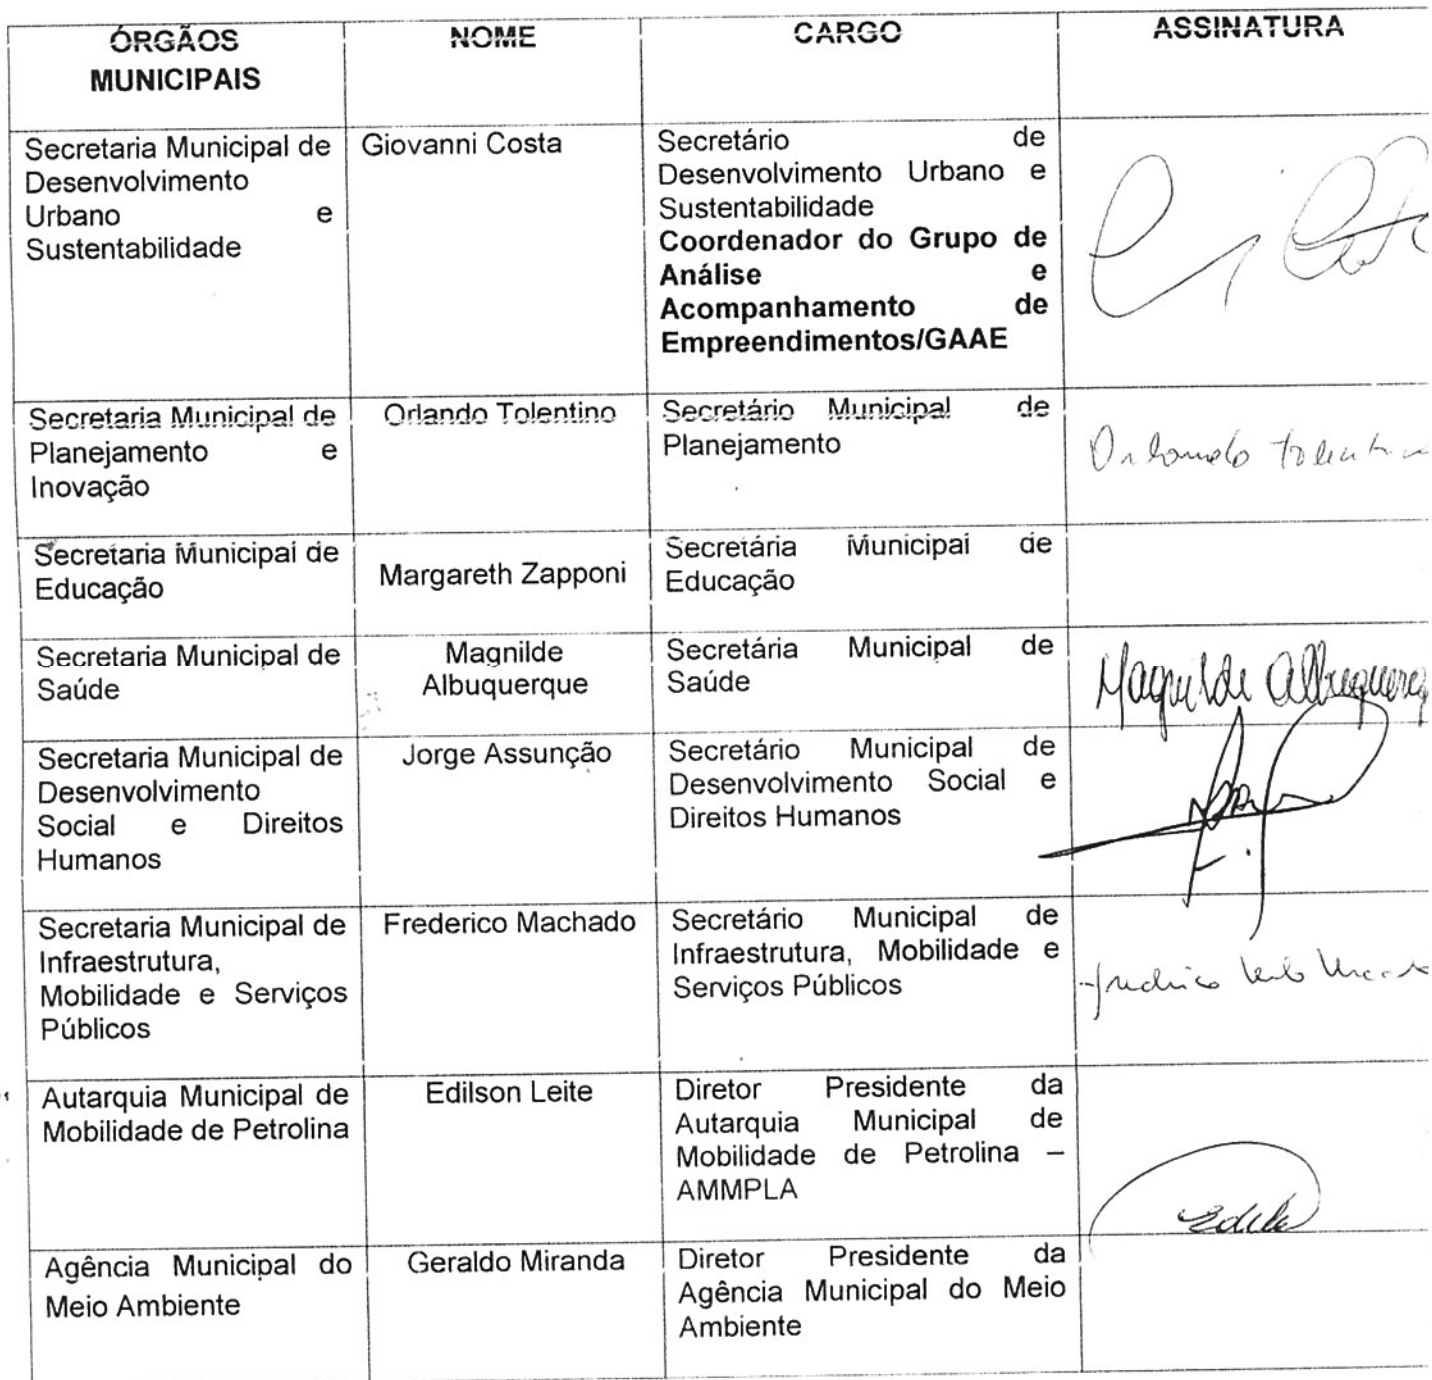 ÓRGÃOS
MUNICIPAIS
NOME
CARGO
ASSINATURA
Secretaria Municipal de
Desenvolvimento
Urbano e
Sustentabilidade
Giovanni Costa
Secretário de
Desenvolvimento Urbano e
Sustentabilidade
Coordenador do Grupo de
Análise e
Acompanhamento de
Empreendimentos/GAAE
Secretaria Municipal de
Planejamento e
Inovação
Orlando Tolentino
Secretário Municipal de
Planejamento
Orlando Tolentino
Secretaria Municipal de
Educação
Margareth Zapponi
Secretária Municipal de
Educação
Secretaria Municipal de
Saúde
Magnilde
Albuquerque
Secretária Municipal de
Saúde
Magnilde Albuquerque
Secretaria Municipal de
Desenvolvimento
Social e Direitos
Humanos
Jorge Assunção
Secretário Municipal de
Desenvolvimento Social e
Direitos Humanos
Secretaria Municipal de
Infraestrutura,
Mobilidade e Serviços
Públicos
Frederico Machado
Secretário Municipal de
Infraestrutura, Mobilidade e
Serviços Públicos
Frederico
Autarquia Municipal de
Mobilidade de Petrolina
Edilson Leite
Diretor Presidente da
Autarquia Municipal de
Mobilidade de Petrolina –
AMMPLA
Agência Municipal do
Meio Ambiente
Geraldo Miranda
Diretor Presidente da
Agência Municipal do Meio
Ambiente